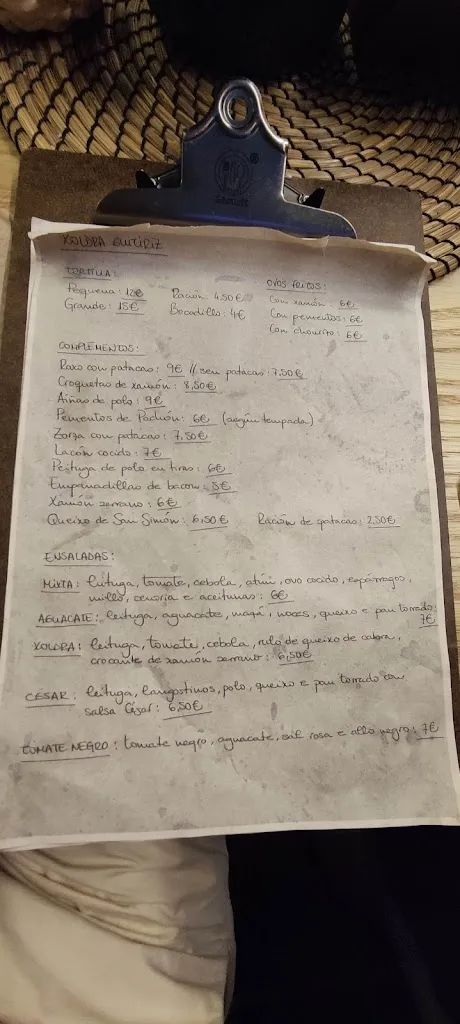 XOLDRA GUITIRIZ
TORTILLA:
Pequena: 12€ Ración: 4,50€ OVOS FRITOS:
Grande: 15€ Bocadillo: 4€ Con xamón: 6€
Con pementos: 6€
Con chourizo: 6€
COMPLEMENTOS:
Raxo con patacas: 9€ // sen patacas: 7,50€
Croquetas de xamón: 8,50€
Aliñas de polo: 9€
Pementos de Padrón: 6€ (según tempada)
Zorza con patacas: 7,50€
Lacón cocido: 7€
Peituga de polo en tiras: 6€
Empanadillas de bacon: 5€
Xamón serrano: 6€
Queixo de San Simón: 6,50€ Ración de patacas: 2,50€
ENSALADAS:
MIXTA: leituga, tomate, cebola, atún, ovo cocido, espárragos,
millo, cenoria e aceitunas: 6€
AGUACATE: leituga, aguacate, mazá, noces, queixo e pan torrado:
7€
leituga, tomate, cebola, rulo de queixo de cabra,
crocante de xamón serrano: 6,50€
CÉSAR: leituga, langostinos, polo, queixo e pan torrado con
salsa César: 6,50€
TOMATE NEGRO: tomate negro, aguacate, sal rosa e allo negro: 7€